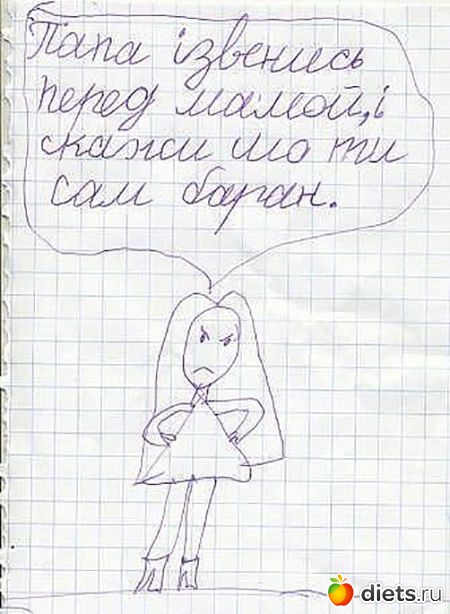 Папа ізвенись
перед мамой, і
скажи шо ти
сам баран.
diets.ru